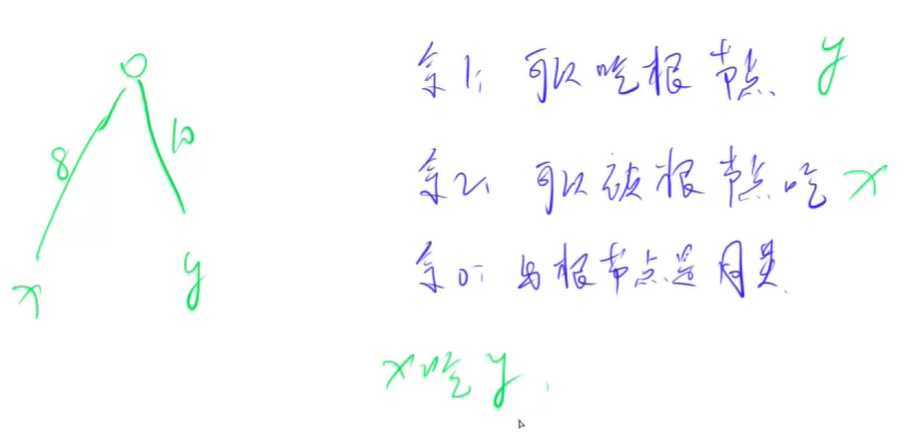 余1: 可以吃根节点 y
余2: 可以被根节点吃 x
余0: 与根节点是同类
8
10
x
y
x吃y.